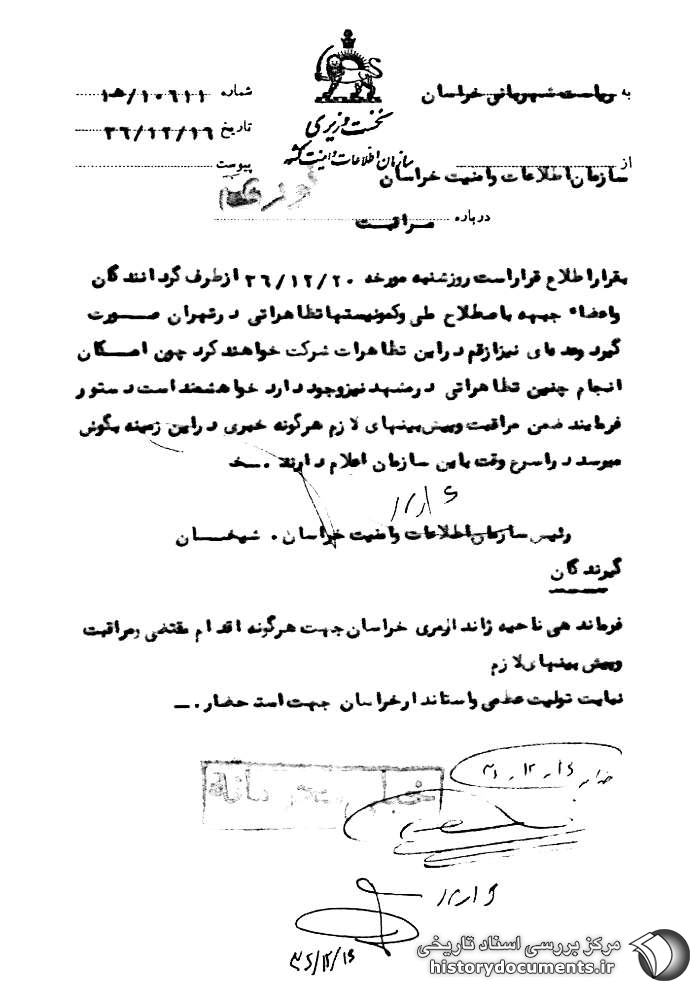 به ریاست شهربانی خراسان
نخست وزیری
سازمان اطلاعات و امنیت کشور
شماره ۱۵/۱۰۶۱۱
تاریخ ۳۶/۱۲/۱۶
پیوست
از سازمان اطلاعات وامنیت خراسان
درباره مراقبت
بقرار اطلاع قرار است روز شنبه مورخه ۳۶/۱۲/۲۰ از طرف گردانندگان
واعضاء جبهه باصطلاح ملی وکمونیستها تظاهراتی در تهران صورت
گیرد وعده ای نیز از قم در این تظاهرات شرکت خواهند کرد چون امکان
انجام چنین تظاهراتی در مشهد نیز وجود دارد خواهشمند است دستور
فرمایند ضمن مراقبت وپیش بینیهای لازم هرگونه خبری در این زمینه بگوش
میرسد در اسرع وقت باین سازمان اعلام دارند .
رئیس سازمان اطلاعات وامنیت خراسان . شیخان
گیرندگان
فرماندهی ناحیه ژاندارمری خراسان جهت هرگونه اقدام مقتضی ومراقبت
وپیش بینیهای لازم
نیابت تولیت عظمی واستاندار خراسان جهت استحضار . ـ
۳۶/۱۲/۱۶
مرکز بررسی اسناد تاریخی
historydocuments.ir